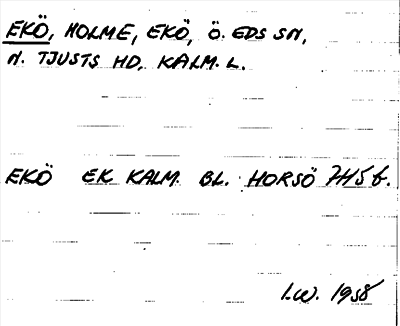 EKÖ, HOLME, EKÖ, Ö. EDS SN,
N. TJUSTS HD, KALM. L.
EKÖ EK KALM. BL. HORSÖ 745 b.
I.W. 1958